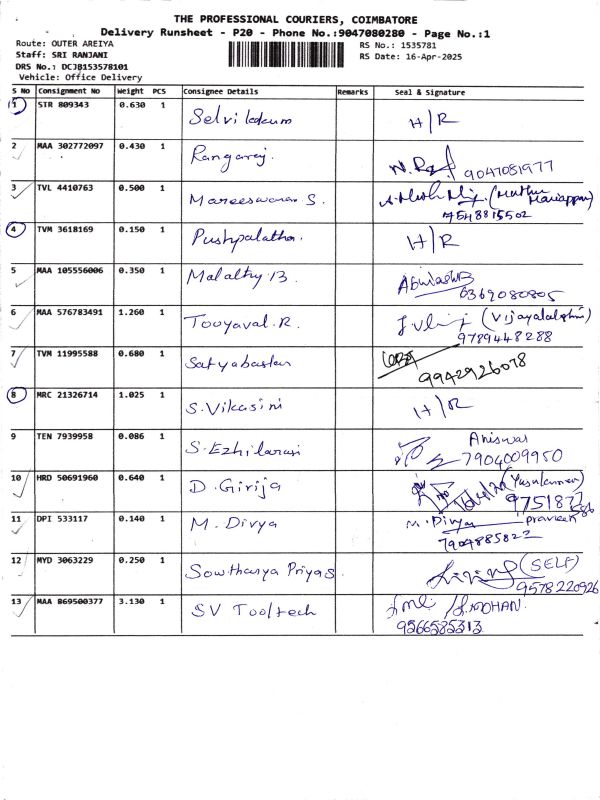 THE PROFESSIONAL COURIERS, COIMBATORE
Delivery Runsheet - P20 - Phone No.:9047080280 - Page No.:1
Route: OUTER AREIYA
RS No.: 1535781
Staff: SRI RANJANI
RS Date: 16-Apr-2025
DRS No.: DCJB153578101
Vehicle: Office Delivery
S No Consignment No Weight PCS Consignee Details Remarks Seal & Signature
1 STR 809343 0.630 1 H/R
2 MAA 302772097 0.430 1 Rangaraj. 9047051977
3 TVL 4410763 0.500 1 Mareeswaran S. (Muthu Mariappan)
7548815502
4 TVM 3618169 0.150 1 Pushpalatha. H/R
5 MAA 105556006 0.350 1 Malathy.B
6369080805
6 MAA 576783491 1.260 1 Tooyaval.R. (Vijayalakshmi)
9789448288
7 TVM 11995588 0.680 1 Satyabaskar
9942926078
8 MRC 21326714 1.025 1 S.Vikasini H/R
9 TEN 7939958 0.086 1 S.Ezhilarasi Aniswar
7904009950
10 HRD 50691960 0.640 1 D.Girija
11 DPI 533117 0.140 1 M.Divya M.Divya Praveek
7904885822
12 MYD 3063229 0.250 1 Sowthasya Priya S. (SELF)
9578220926
13 MAA 869500377 3.130 1 SV Tooltech
9566585313